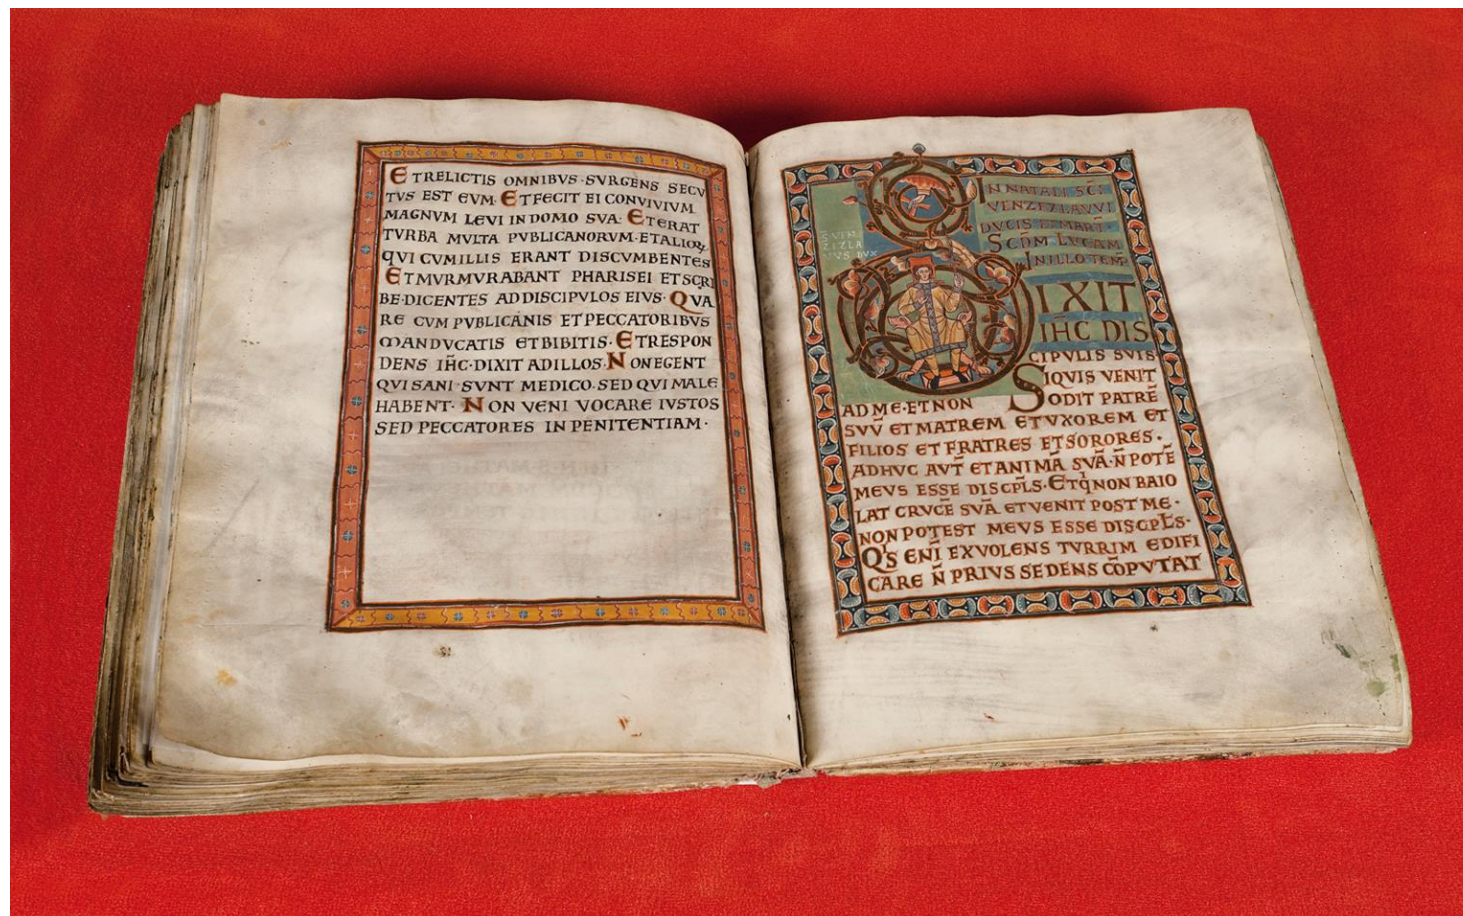 ETRELICTIS OMNIBVS·SVRGENS SECV
TVS EST EVM·ETFECIT EI CONVIVIVM
MAGNVM LEVI INDOMO SVA·ETERAT
TVRBA MVLTA PVBLICANORVM·ETALIOꝜ
QVI CVMILLIS ERANT DISCVMBENTES
ETMVRMVRABANT PHARISEI ETSCRI
BE·DICENTES ADDISCIPVLOS EIVS·QVA
RE CVM PVBLICANIS ETPECCATORIBVS
MANDVCATIS ETBIBITIS·ETRESPON
DENS IH̄C·DIXIT ADILLOS·NONEGENT
QVI SANI SVNT MEDICO·SED QVI MALE
HABENT·NON VENI VOCARE IVSTOS
SED PECCATORES IN PENITENTIAM·
INNATALI SC̄I
VENZEZLAVVI
DVCIS ET MART̄
SCD̄M LVCAM
INILLO TEMP̄
S·VEN
ZIZLA
VVS DVX
DIXIT
IH̄C DIS
CIPVLIS SVIS
SIQVIS VENIT
ADME·ETNON SODIT PATRĒ
SVV̄ ETMATREM ETVXOREM ET
FILIOS ET FRATRES ETSORORES·
ADHVC AVT̄ ETANIMĀ SVĀ·N̄POTĒ
MEVS ESSE DISCPL̄S·ETQ̇NON BAIO
LAT CRVCĒ SVĀ ETVENIT POSTME·
NONPOTEST MEVS ESSE DISCPL̄S·
QS ENĪ EXVOLENS TVRRIM EDIFI
CARE N̄ PRIVS SEDENS CŌPVTAT